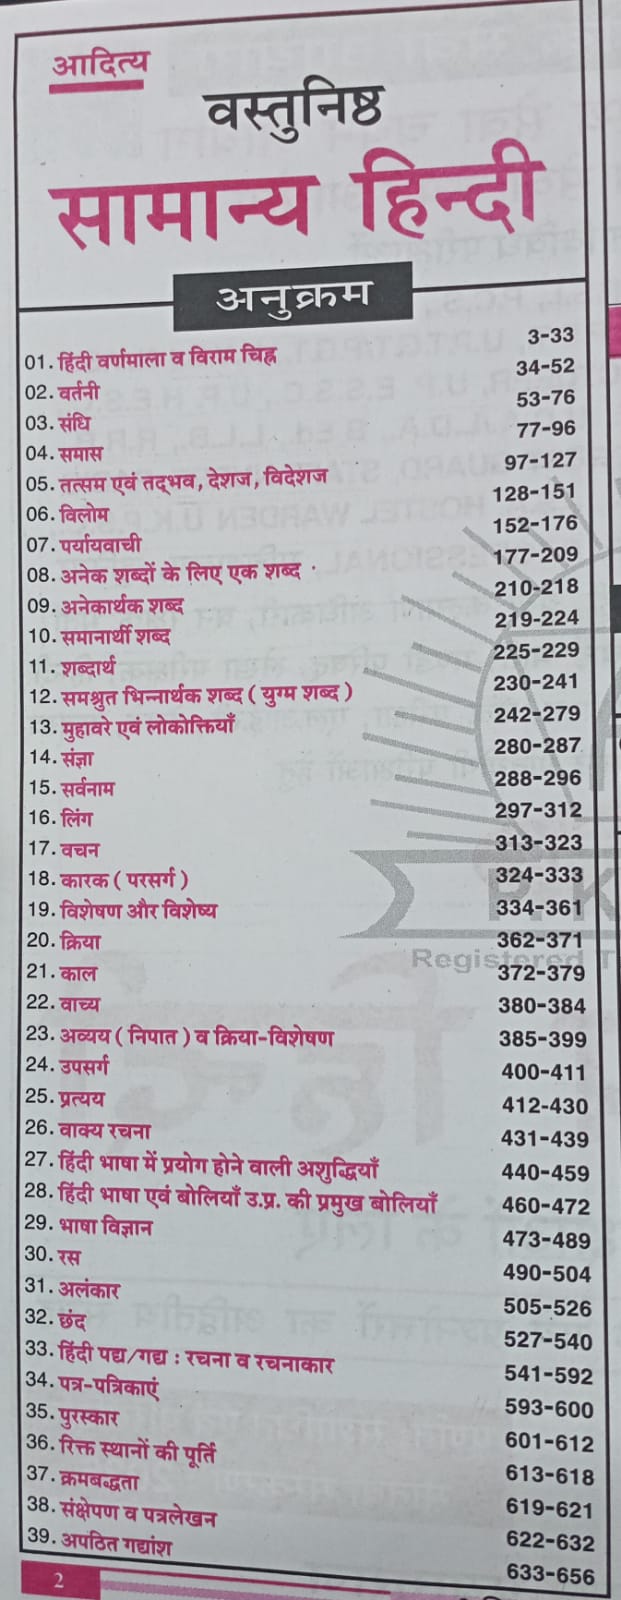 आदित्य
वस्तुनिष्ठ
सामान्य हिन्दी
अनुक्रम
01. हिंदी वर्णमाला व विराम चिह्न 3-33
02. वर्तनी 34-52
03. संधि 53-76
04. समास 77-96
05. तत्सम एवं तद्भव, देशज, विदेशज 97-127
06. विलोम 128-151
07. पर्यायवाची 152-176
08. अनेक शब्दों के लिए एक शब्द 177-209
09. अनेकार्थक शब्द 210-218
10. समानार्थी शब्द 219-224
11. शब्दार्थ 225-229
12. समश्रुत भिन्नार्थक शब्द ( युग्म शब्द ) 230-241
13. मुहावरे एवं लोकोक्तियाँ 242-279
14. संज्ञा 280-287
15. सर्वनाम 288-296
16. लिंग 297-312
17. वचन 313-323
18. कारक ( परसर्ग ) 324-333
19. विशेषण और विशेष्य 334-361
20. क्रिया 362-371
21. काल 372-379
22. वाच्य 380-384
23. अव्यय ( निपात ) व क्रिया-विशेषण 385-399
24. उपसर्ग 400-411
25. प्रत्यय 412-430
26. वाक्य रचना 431-439
27. हिंदी भाषा में प्रयोग होने वाली अशुद्धियाँ 440-459
28. हिंदी भाषा एवं बोलियाँ उ.प्र. की प्रमुख बोलियाँ 460-472
29. भाषा विज्ञान 473-489
30. रस 490-504
31. अलंकार 505-526
32. छंद 527-540
33. हिंदी पद्य/गद्य : रचना व रचनाकार 541-592
34. पत्र-पत्रिकाएं 593-600
35. पुरस्कार 601-612
36. रिक्त स्थानों की पूर्ति 613-618
37. क्रमबद्धता 619-621
38. संक्षेपण व पत्रलेखन 622-632
39. अपठित गद्यांश 633-656
P.K
Registered T
2